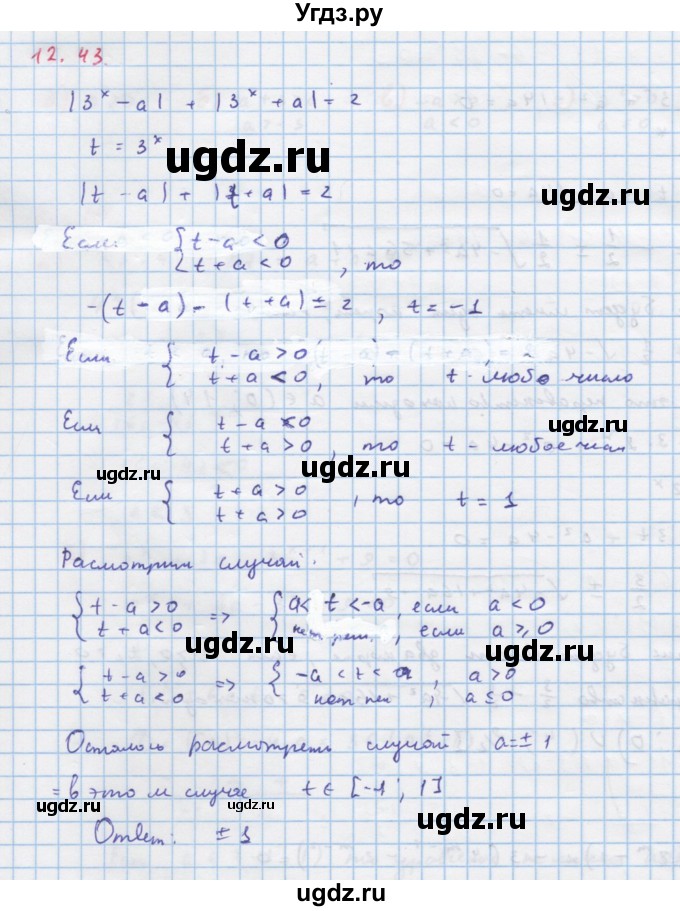 Угдз.ру
12.43
|3^x - a| + |3^x + a| = 2
t = 3^x
ugdz.ru
ugdz.ru
|t - a| + |t + a| = 2
Если { t - a < 0
t + a < 0 , то
ugdz.ru
-(t - a) - (t + a) = 2 , t = -1
Если { t - a > 0
t + a < 0, то t - любо число
Если { t - a < 0
t + a > 0, то t - любое
ugdz.ru
ugdz.ru
Если { t + a > 0
t + a > 0 , то t = 1
Расмотрим случай.
{ t - a > 0
t + a < 0 => { a < t < -a, если a < 0
нет реш., если a ⩾ 0
ugdz.ru
ugdz.ru
{ t - a > 0
t + a < 0 => { -a < t < a, a > 0
нет реш , a ≤ 0
Осталось расмотреть случай a = ± 1
= в этом случае t ∈ [-1 ; 1]
ugdz.ru
ugdz.ru
Ответ: ± 1
ugdz.ru
ugdz.ru